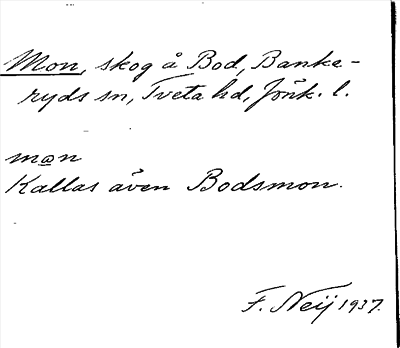 Mon, skog å Bod, Banke-
ryds sn, Tveta hd, Jönk. l.
mən
Kallas även Bodsmon.
F. Neij 1937.